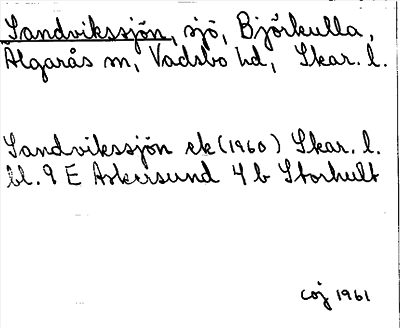 Sandvikssjön, sjö, Björkulla,
Älgarås sn, Vadsbo hd, Skar. l.
Sandvikssjön ek (1960) Skar. l.
bl. 9 E Askersund 4 b Storhult
COJ 1961